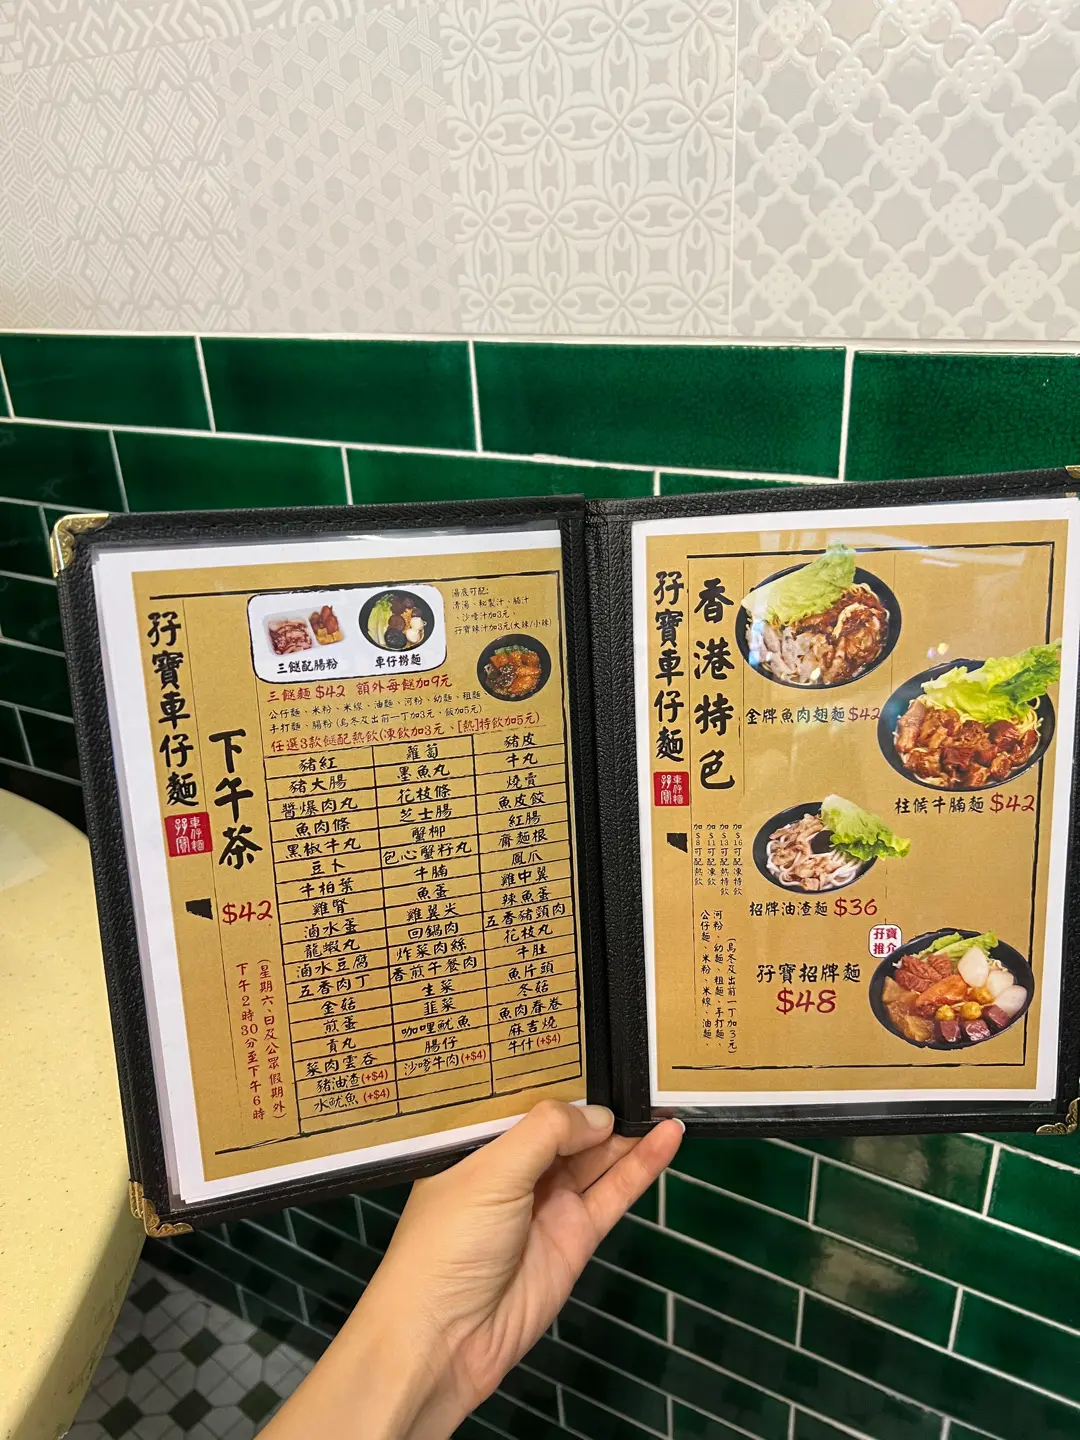 孖寶車仔麵
孖寶
車仔麵
下午茶
$42
(星期六、日及公眾假期外)
下午2時30分至下午6時
三餸配腸粉
車仔撈麵
湯底可配:
清湯、秘製汁、腩汁
、沙嗲汁加3元、
孖寶辣汁加3元(大辣/小辣)
三餸麵 $42 額外每餸加9元
公仔麵、米粉、米線、油麵、河粉、幼麵、粗麵
手打麵、腸粉 (烏冬及出前一丁加3元、飯加5元)
任選3款餸配熱飲(凍飲加3元、[熱]特飲加5元)
豬紅 蘿蔔 豬皮
豬大腸 墨魚丸 牛丸
醬爆肉丸 花枝條 燒賣
魚肉條 芝士腸 魚皮餃
黑椒牛丸 蟹柳 紅腸
豆卜 包心蟹籽丸 齋麵根
牛柏葉 牛腩 鳳爪
雞腎 魚蛋 雞中翼
滷水蛋 雞翼尖 辣魚蛋
龍蝦丸 回鍋肉 五香豬頸肉
滷水豆腐 炸菜肉絲 花枝丸
五香肉丁 香煎午餐肉 牛肚
金菇 生菜 魚片頭
煎蛋 韮菜 冬菇
貢丸 咖喱魷魚 魚肉春卷
菜肉雲吞 腸仔 麻吉燒
豬油渣(+$4) 沙嗲牛肉(+$4) 牛什(+$4)
水魷魚 (+$4)
孖寶車仔麵
孖寶
車仔麵
香港特色
加$16可配凍特飲
加$13可配熱特飲
加$11可配凍飲
加$8可配熱飲
(烏冬及出前一丁加3元)
河粉、幼麵、粗麵、手打麵、
公仔麵、米粉、米線、油麵、
金牌魚肉翅麵$42
柱候牛腩麵 $42
招牌油渣麵 $36
孖寶
推介
孖寶招牌麵
$48